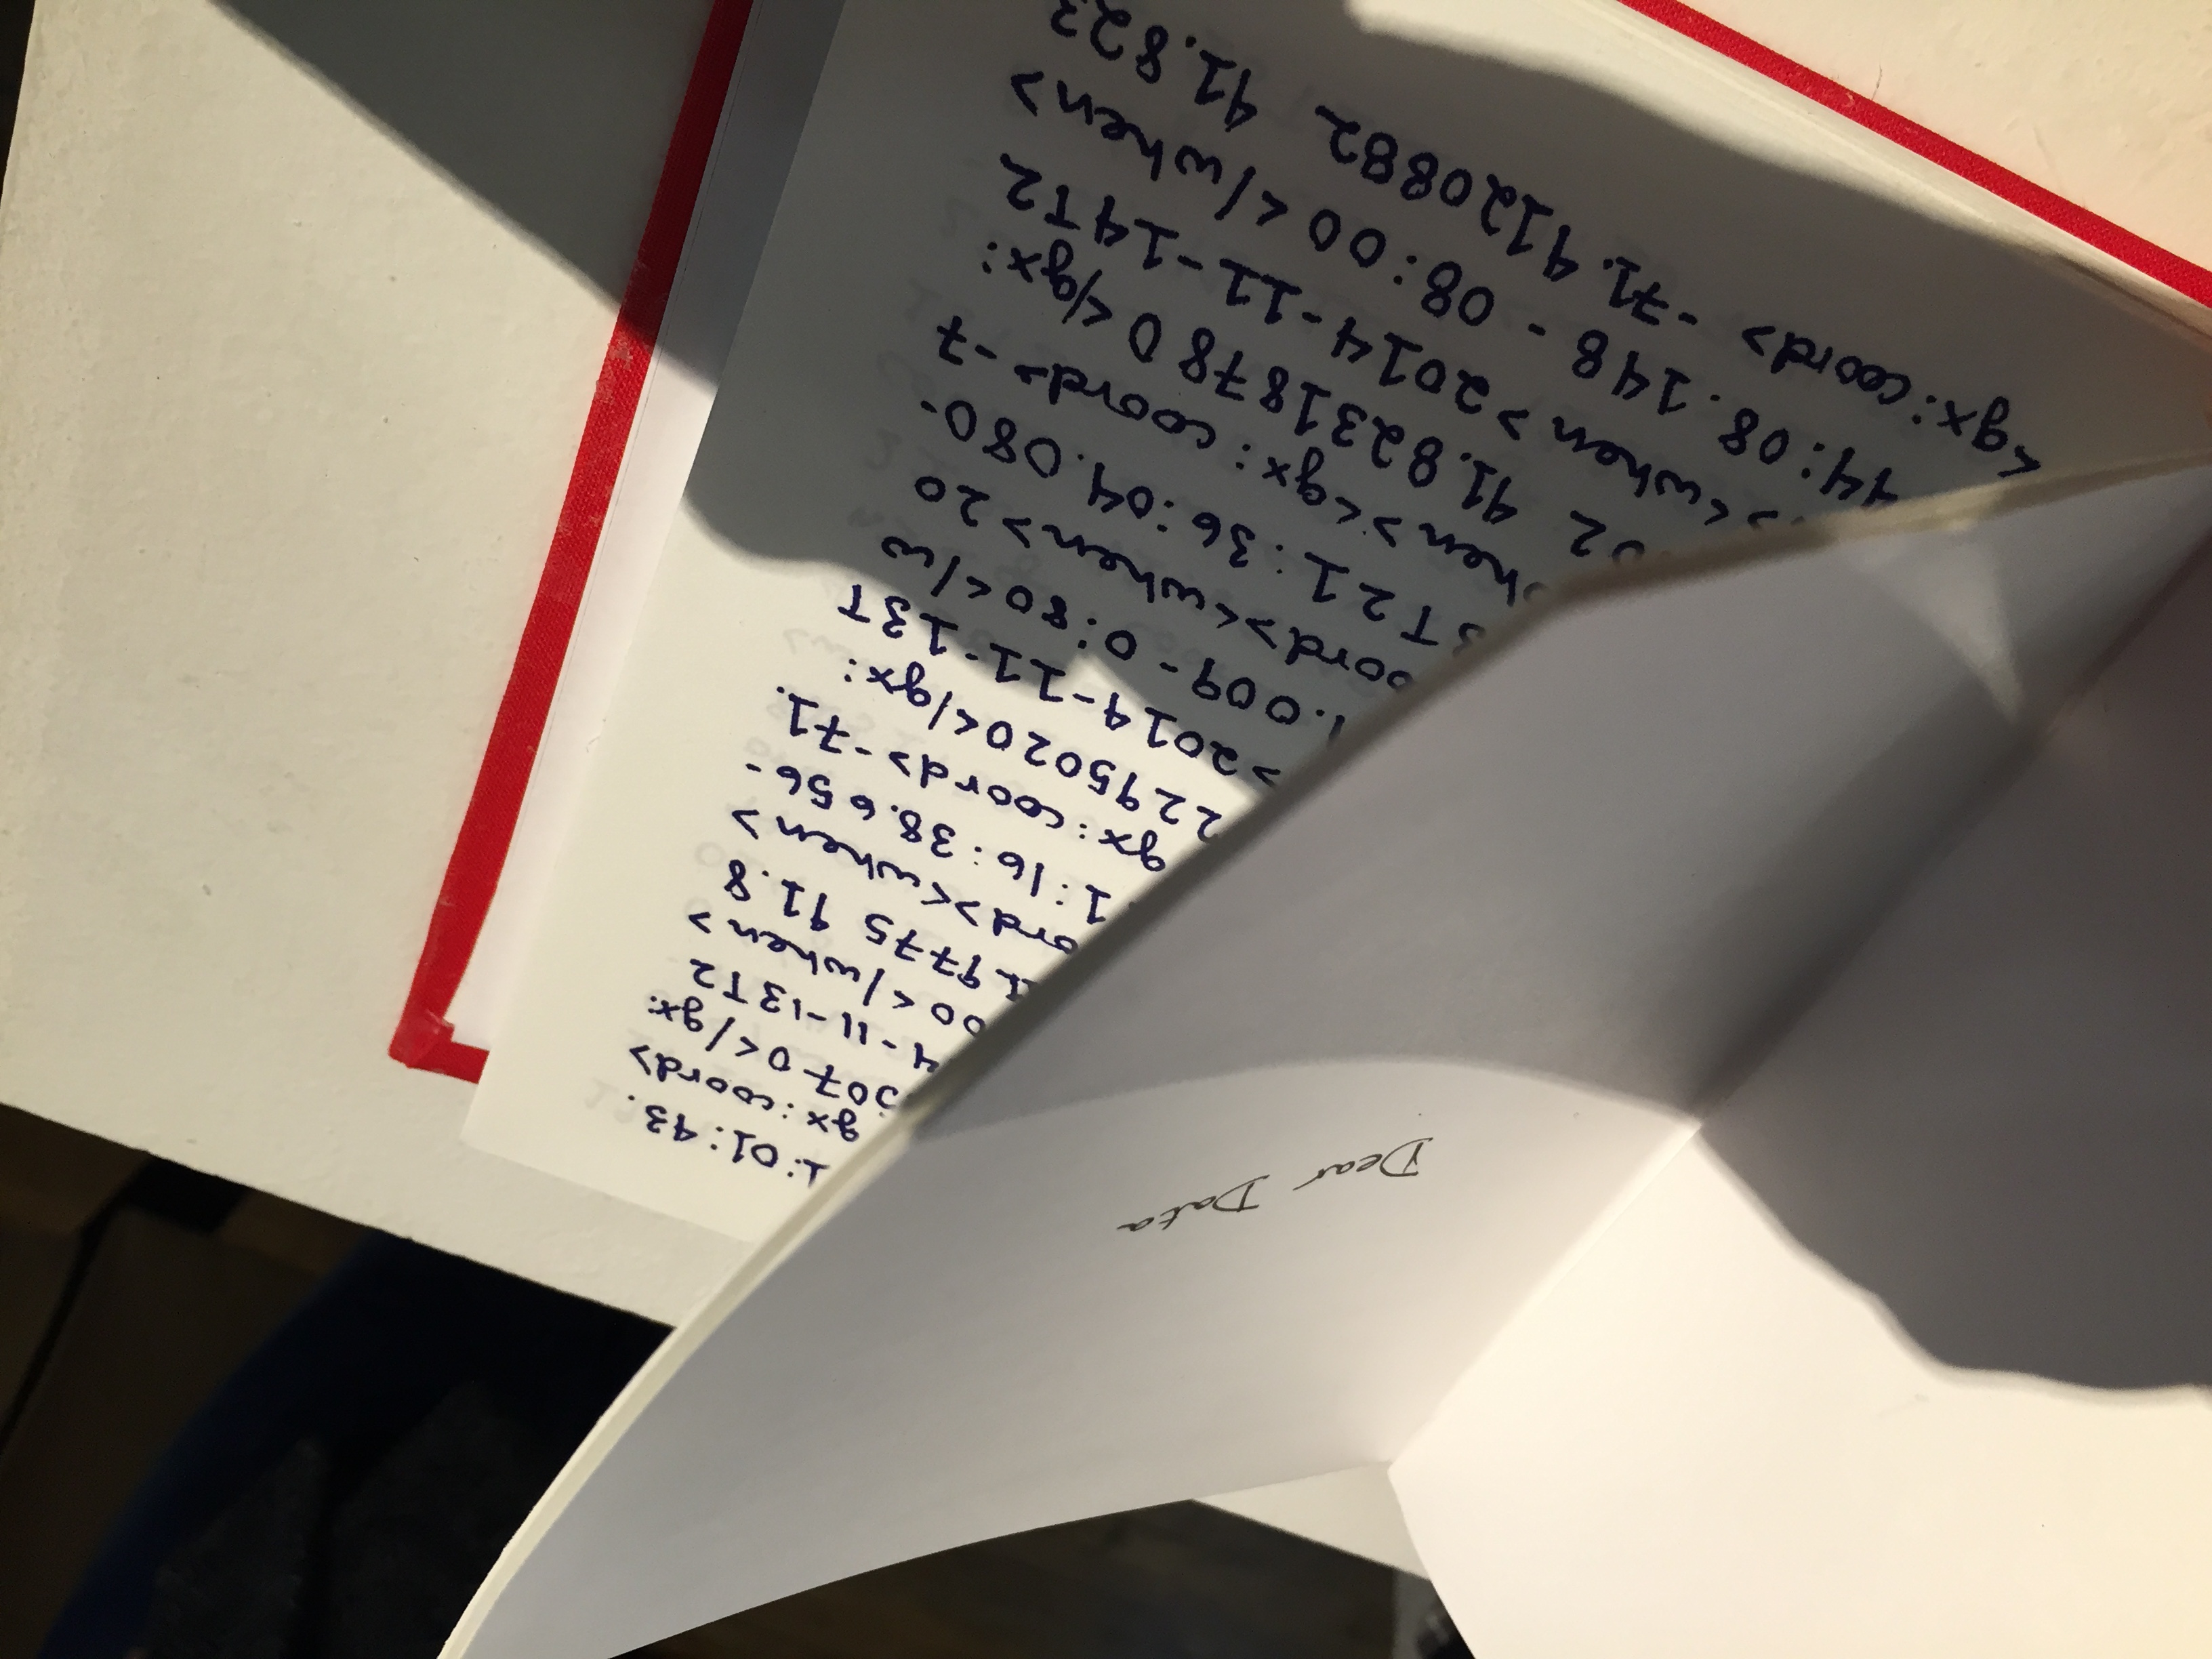 Dear Data
1:01:43.
gx:coord>
5070</gx:
4-11-13T2
00</when>
9775 41.8
ord><when>
1:16:38.656-
gx:coord>-71.
2295020</gx:
>2014-11-13T
1.009-0:80</w
oord><when>20
3T21:36:04.080-
hen><gx:coord>-7
02 41.82318780</gx:
><when>2014-11-14T2
44:08.148-08:00</when>
<gx:coord>-71.4120882 41.823